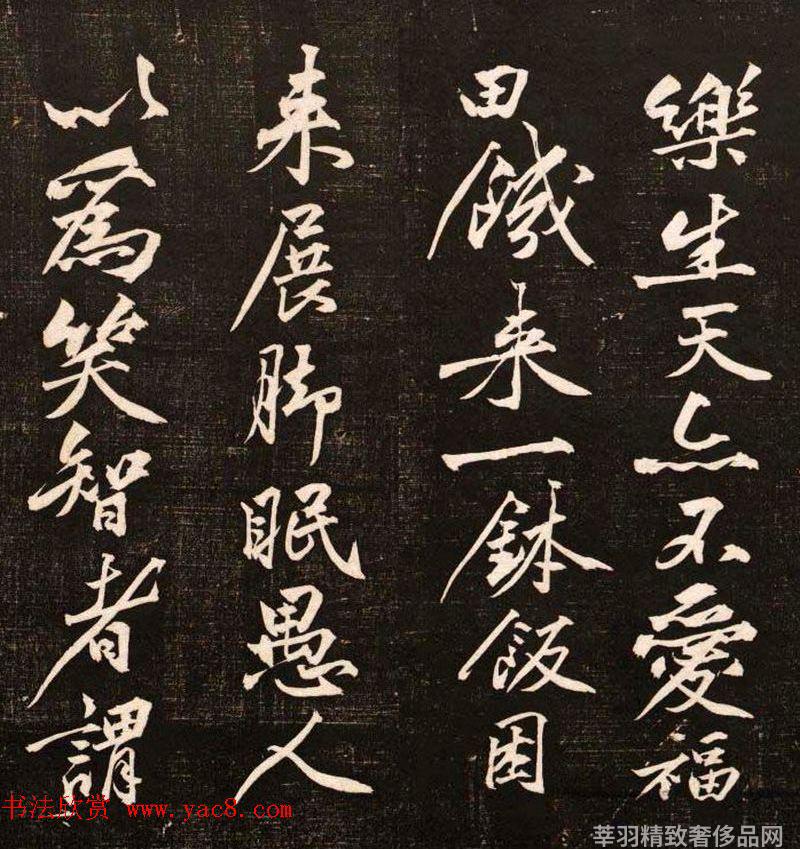 樂生天亦不愛福
田饑来一鉢飯困
来展脚眠愚人
以爲笑智者謂
书法欣赏 www.yac8.com
莘羽精致奢侈品网